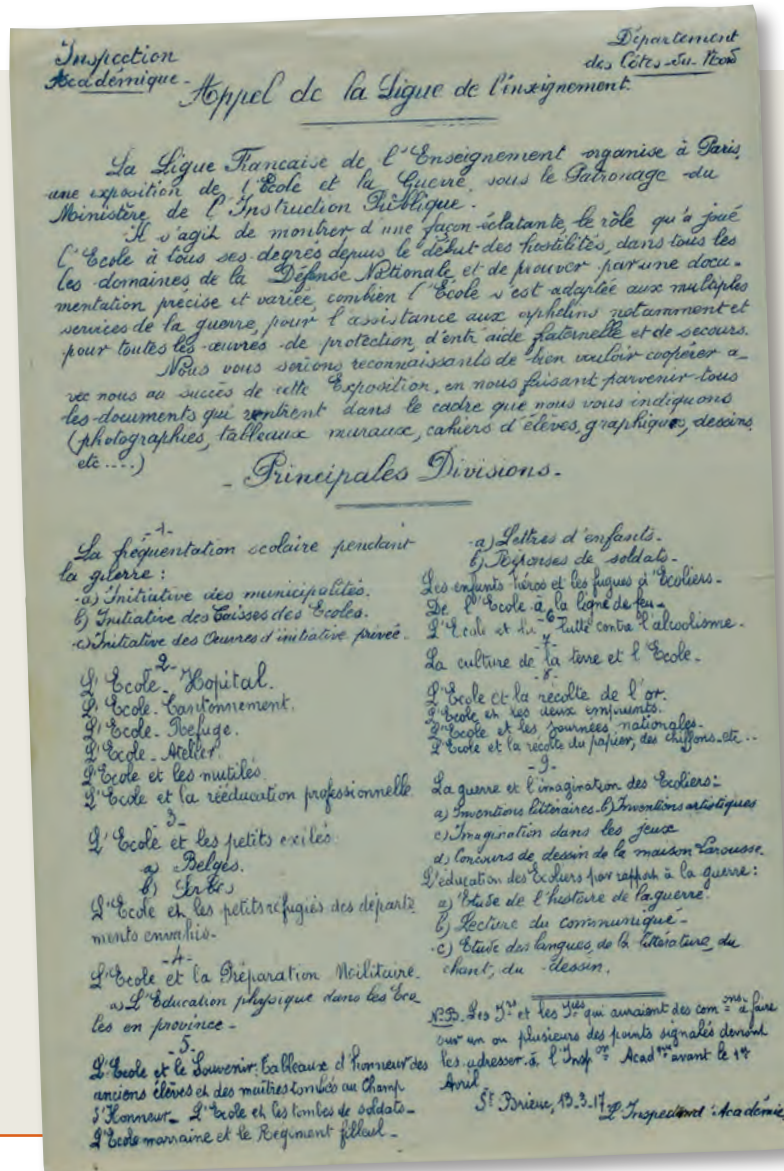 Inspection
Académique -
Département
des Côtes-du-Nord
Appel de la Ligue de l'inseignement.
La Ligue Francaise de l'Enseignement organise à Paris,
une exposition de l'École et la Guerre, sous le Patronage du
Ministère de l'Instruction Publique.
Il s'agit de montrer d'une façon éclatante, le rôle qu'a joué
l'Ecole à tous ses degrés depuis le début des hostilités, dans tous les
les domaines de la Défense Nationale et de prouver par une docu-
mentation précise et variée, combien l'École s'est adaptée aux multiples
services de la guerre, pour l'assistance aux orphelins notamment et
pour toutes les œuvres de protection, d'entr'aide fraternelle et de secours.
Nous vous serions reconnaissants de bien vouloir coopérer a-
vec nous au succès de cette Exposition, en nous faisant parvenir tous
les documents qui rentrent dans le cadre que nous vous indiquons
(photographies, tableaux muraux, cahiers d'élèves, graphiques, dessins
etc ....)
- Principales Divisions -
-1-
La fréquentation scolaire pendant
la guerre :
a) Initiative des municipalités.
b) Initiative des Caisses des Ecoles.
c) Initiative des Oeuvres d'initiative privée.
-2-
L'Ecole - Hopital.
L'Ecole - Cantonnement.
L'Ecole - Refuge.
L'Ecole - Atelier.
L'Ecole et les mutilés
L'Ecole et la rééducation professionnelle
-3-
L'Ecole et les petits exilés
a) Belges.
b) Serbes
L'Ecole et les petits refugiés des départe
ments envahis -
-4-
L'Ecole et la Préparation Militaire.
a) L'Education physique dans les Eco
les en province -
-5-
L'Ecole et le Souvenir: Tableaux d'honneur des
anciens élèves et des maîtres tombés au Champ
d'Honneur - L'Ecole et les tombes de soldats -
L'Ecole marraine et le Régiment filleul -
a) Lettres d'enfants -
b) Réponses de soldats -
Les enfants héros et les fugues d'Ecoliers -
De l'Ecole à la ligne de feu -
-6-
L'Ecole et la lutte contre l'alcoolisme -
-7-
La culture de la terre et l'Ecole -
-8-
L'Ecole et la récolte de l'or.
L'Ecole et les deux emprunts.
L'Ecole et les Journées nationales.
L'Ecole et la récolte du papier, des chiffons, etc ..
-9-
La guerre et l'imagination des Ecoliers :
a) Inventions littéraires - b) Inventions artistiques
c) Imagination dans les jeux
d) Concours de dessin de la maison Larousse.
L'éducation des Ecoliers par rapport à la guerre :
a) Etude de l'histoire de la guerre.
b) Lecture du communiqué -
c) Etude des langues, de la littérature, du
chant, du dessin.
N.B. Les Irs et les Ices qui auraient des comons à faire
sur un ou plusieurs des points signalés devront
les adresser à l'Inspon Acadque avant le 1er
Avril
St Brieuc, 13.3.17 L'Inspecteur d'Académie,